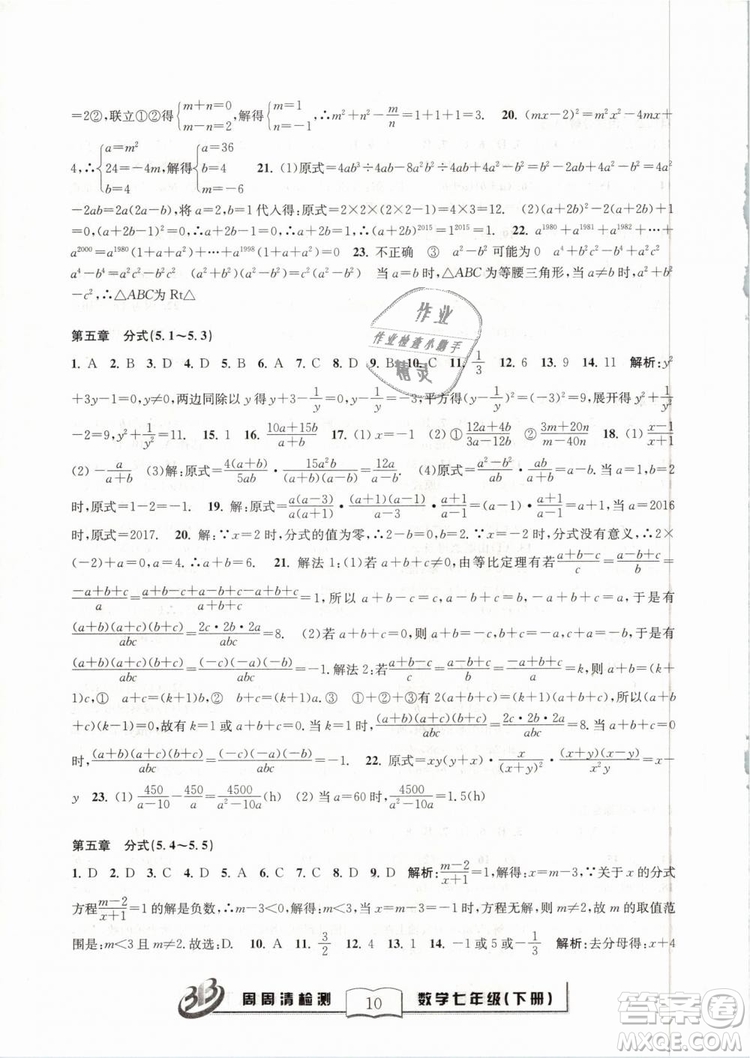 =2②,联立①②得{m+n=0 m−n=2,解得{m=1 n=−1,∴m²+n²−m/n=1+1+1=3. 20. (mx−2)²=m²x²−4mx+
4,∴{a=m² 24=−4m,解得{a=36 b=4 b=4 21. (1)原式=4ab³÷4ab−8a²b²÷4ab+4a²=b²−2ab+4a²
−2ab=2a(2a−b),将a=2,b=1代入得:原式=2×2×(2×2−1)=4×3=12. (2)
=0,(a+2b−1)²=0,∴a+2b=1,∴(a+2b)²⁰¹⁵=1²⁰¹⁵=1 22. a¹⁹⁸⁰+a¹⁹⁸¹+a¹⁹⁸²+…+
a²⁰⁰⁰=a¹⁹⁸⁰(1+a+a²)+…+a¹⁹⁹⁸(1+a+a²)=0 23. 不正确 ③ a²−b²可能为0
a⁴−b⁴=a²c²−b²c² 当a=b时,△ABC为等腰三角形,当a≠b时,a²+b²
−c²=0,∴△ABC为Rt△
第五章 分式(5.1~5.3)
1. A 2. B 3. D 4. D 5. B 6. A 7. C 8. D 9. B 10. C 11. 1/3 12. 6 13. 9 14. 11 解析:y²
+3y−1=0,两边同除以y=y+3−1/y=0,y−1/y=−3,平方得(y−1/y)²=9,展开得y²+1/y²
−2=9,y²+1/y²=11. 15. 1 16. (10a+15b)/(a+b) 17. (1)x=−1 (2) ① (12a+4b)/(3a−12b) ② (20m+n)/(m−40n) 18. (1) (x−1)/(x+1)
(2) −a/(a+b) (3)解:原式=4(a+b)/5ab·15a²b/(a+b)(a−b)=12a/(a−b) (4)原式=(a²−b²)/ab·ab/(a+b)=a−b.当a=1,b=2
时,原式=1−2=−1. 19. 解:原式=a(a−3)/(a+1)(a−1)·(a+1)(a−1)/(a−3)·(a+1)/a=(a+1)/1=a+1,当a=2016
时,原式=2017. 20. 解:∵x=2时,分式的值为零,∴b=2,∵x=−2时,分式没有意义,∴2×
(−2)+a=0,∴a=4,∴a+b=6. 21. 解法1:(1)若a+b+c≠0,由等比定理有(a+b−c)/c=(a−b+c)/b=
(−a+b+c)/a=(a+b−c+a−b+c−a+b+c)/(a+b+c)=1,所以a+b−c=c,a−b+c=b,−a+b+c=a,于是有
(a+b)(a+c)(b+c)/abc=2c·2b·2a/abc=8. (2)若a+b+c=0,则a+b=−c,b+c=−a,c+a=−b,于是有
(a+b)(a+c)(b+c)/abc=(−c)(−a)(−b)/abc=−1.解法2:若(a+b)/c−1=(a+c)/b−1=(b+c)/a−1=k,则a+b=(k+
1)c,① a+c=(k+1)b,② b+c=(k+1)a.③ ①+②+③有2(a+b+c)=(k+1)(a+b+c),所以(a+
b+c)(k−1)=0,故有k=1或a+b+c=0.当k=1时,(a+b)(a+c)(b+c)/abc=2c·2b·2a/abc=8.当a+b+c=0
时,(a+b)(a+c)(b+c)/abc=(−c)(−b)(−a)/abc=−1. 22. 原式=xy(y+x)²·x/(x+y)²·(x−y)/x²y=x−
y 23. (1) 450/(a−10)−450/a=4500/(a²−10a)(h) (2) 当a=60时,原式=1.5(h)
第五章 分式(5.4~5.5)
1. D 2. D 3. D 4. B 5. A 6. C 7. C 8. A 9. D 解析:(m−2)/(x+1)=1,解得:x=m−3,∵关于x的分式
方程(m−2)/(x+1)=1的解是负数,∴m−3<0,解得:m<3,当x=m−3=−1时,方程无解,则m≠2,故m的取值范
围是:m<3且m≠2.故选:D. 10. A 11. 3/2 12. 4 13. 1 14. −2或5或−1/3 解析:去分母得:x+4
BBB 周周清检测 10 数学七年级(下册)
作业
作业检查小助手
精灵
答案卷
MXQE.COM